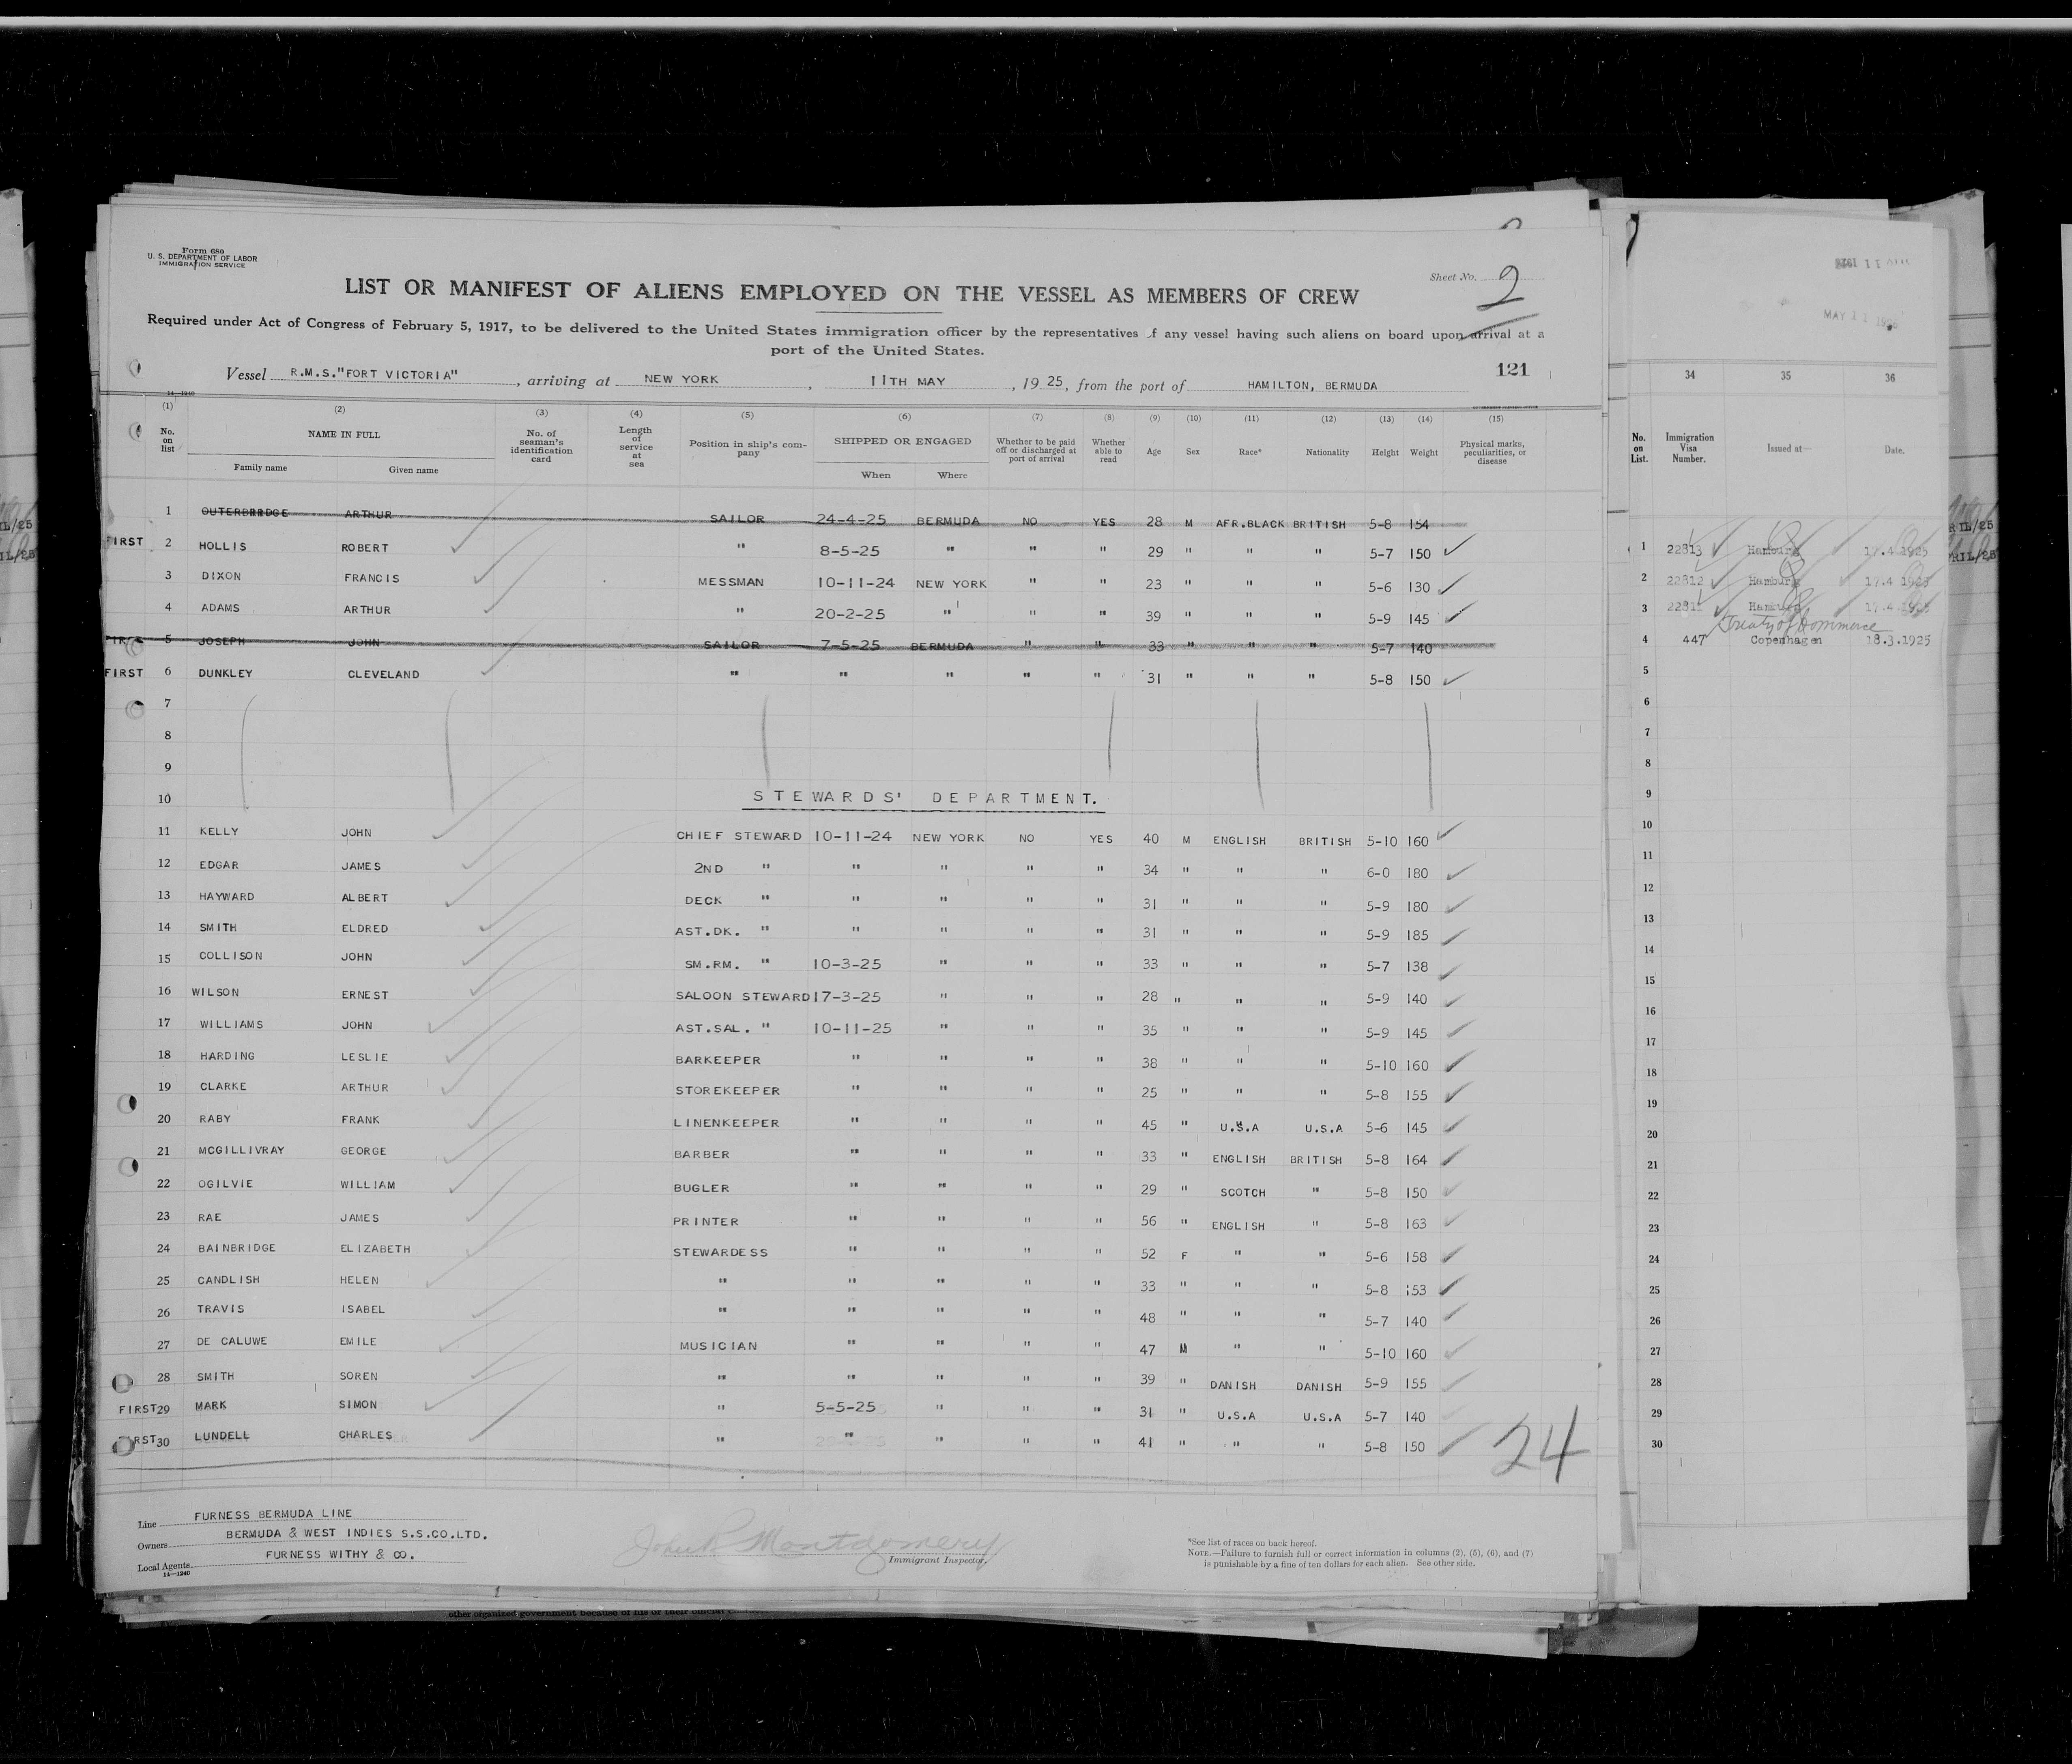 Form 680
U. S. DEPARTMENT OF LABOR
IMMIGRATION SERVICE
Sheet No. 2
LIST OR MANIFEST OF ALIENS EMPLOYED ON THE VESSEL AS MEMBERS OF CREW
Required under Act of Congress of February 5, 1917, to be delivered to the United States immigration officer by the representatives of any vessel having such aliens on board upon arrival at a
port of the United States.
121
Vessel R.M.S."FORT VICTORIA", arriving at NEW YORK, 11TH MAY, 1925, from the port of HAMILTON, BERMUDA
14—1240
(1) (2) (3) (4) (5) (6) (7) (8) (9) (10) (11) (12) (13) (14) (15)
No. on list NAME IN FULL Family name Given name No. of seaman's identification card Length of service at sea Position in ship's company SHIPPED OR ENGAGED When Where Whether to be paid off or discharged at port of arrival Whether able to read Age Sex Race* Nationality Height Weight Physical marks, peculiarities, or disease
1 OUTERBRIDGE ARTHUR SAILOR 24-4-25 BERMUDA NO YES 28 M AFR.BLACK BRITISH 5-8 154
FIRST 2 HOLLIS ROBERT " 8-5-25 " " " 29 " " " 5-7 150
3 DIXON FRANCIS MESSMAN 10-11-24 NEW YORK " " 23 " " " 5-6 130
4 ADAMS ARTHUR " 20-2-25 " " " 39 " " " 5-9 145
5 JOSEPH JOHN SAILOR 7-5-25 BERMUDA " " 33 " " " 5-7 140
FIRST 6 DUNKLEY CLEVELAND " " " " " 31 " " " 5-8 150
7
8
9
10 STEWARDS' DEPARTMENT.
11 KELLY JOHN CHIEF STEWARD 10-11-24 NEW YORK NO YES 40 M ENGLISH BRITISH 5-10 160
12 EDGAR JAMES 2ND " " " " " 34 " " " 6-0 180
13 HAYWARD ALBERT DECK " " " " " 31 " " " 5-9 180
14 SMITH ELDRED AST.DK. " " " " " 31 " " " 5-9 185
15 COLLISON JOHN SM.RM. " 10-3-25 " " " 33 " " " 5-7 138
16 WILSON ERNEST SALOON STEWARD 17-3-25 " " " 28 " " " 5-9 140
17 WILLIAMS JOHN AST.SAL. " 10-11-25 " " " 35 " " " 5-9 145
18 HARDING LESLIE BARKEEPER " " " " 38 " " " 5-10 160
19 CLARKE ARTHUR STOREKEEPER " " " " 25 " " " 5-8 155
20 RABY FRANK LINENKEEPER " " " " 45 " U.S.A U.S.A 5-6 145
21 MCGILLIVRAY GEORGE BARBER " " " " 33 " ENGLISH BRITISH 5-8 164
22 OGILVIE WILLIAM BUGLER " " " " 29 " SCOTCH " 5-8 150
23 RAE JAMES PRINTER " " " " 56 " ENGLISH " 5-8 163
24 BAINBRIDGE ELIZABETH STEWARDESS " " " " 52 F " " 5-6 158
25 CANDLISH HELEN " " " " " 33 " " " 5-8 153
26 TRAVIS ISABEL " " " " " 48 " " " 5-7 140
27 DE CALUWE EMILE MUSICIAN " " " " 47 M " " 5-10 160
28 SMITH SOREN " " " " " 39 " DANISH DANISH 5-9 155
FIRST 29 MARK SIMON " 5-5-25 " " " 31 " U.S.A U.S.A 5-7 140
30 LUNDELL CHARLES " " " " " 41 " " " 5-8 150
24
Line FURNESS BERMUDA LINE
Owners BERMUDA & WEST INDIES S.S.CO.LTD.
Local Agents FURNESS WITHY & CO.
14—1240
John R Montgomery
Immigrant Inspector.
*See list of races on back hereof.
NOTE.—Failure to furnish full or correct information in columns (2), (5), (6), and (7)
is punishable by a fine of ten dollars for each alien. See other side.
other organized government because of his or their official
MAY 11
34 35 36
No. on List. Immigration Visa Number. Issued at— Date.
1 22813 Hamburg 17.4.1925
2 22812 Hamburg 17.4.1925
3 Hamburg 17.4.1925
Treaty of Commerce
4 447 Copenhagen 18.3.1925
5
6
7
8
9
10
11
12
13
14
15
16
17
18
19
20
21
22
23
24
25
26
27
28
29
30